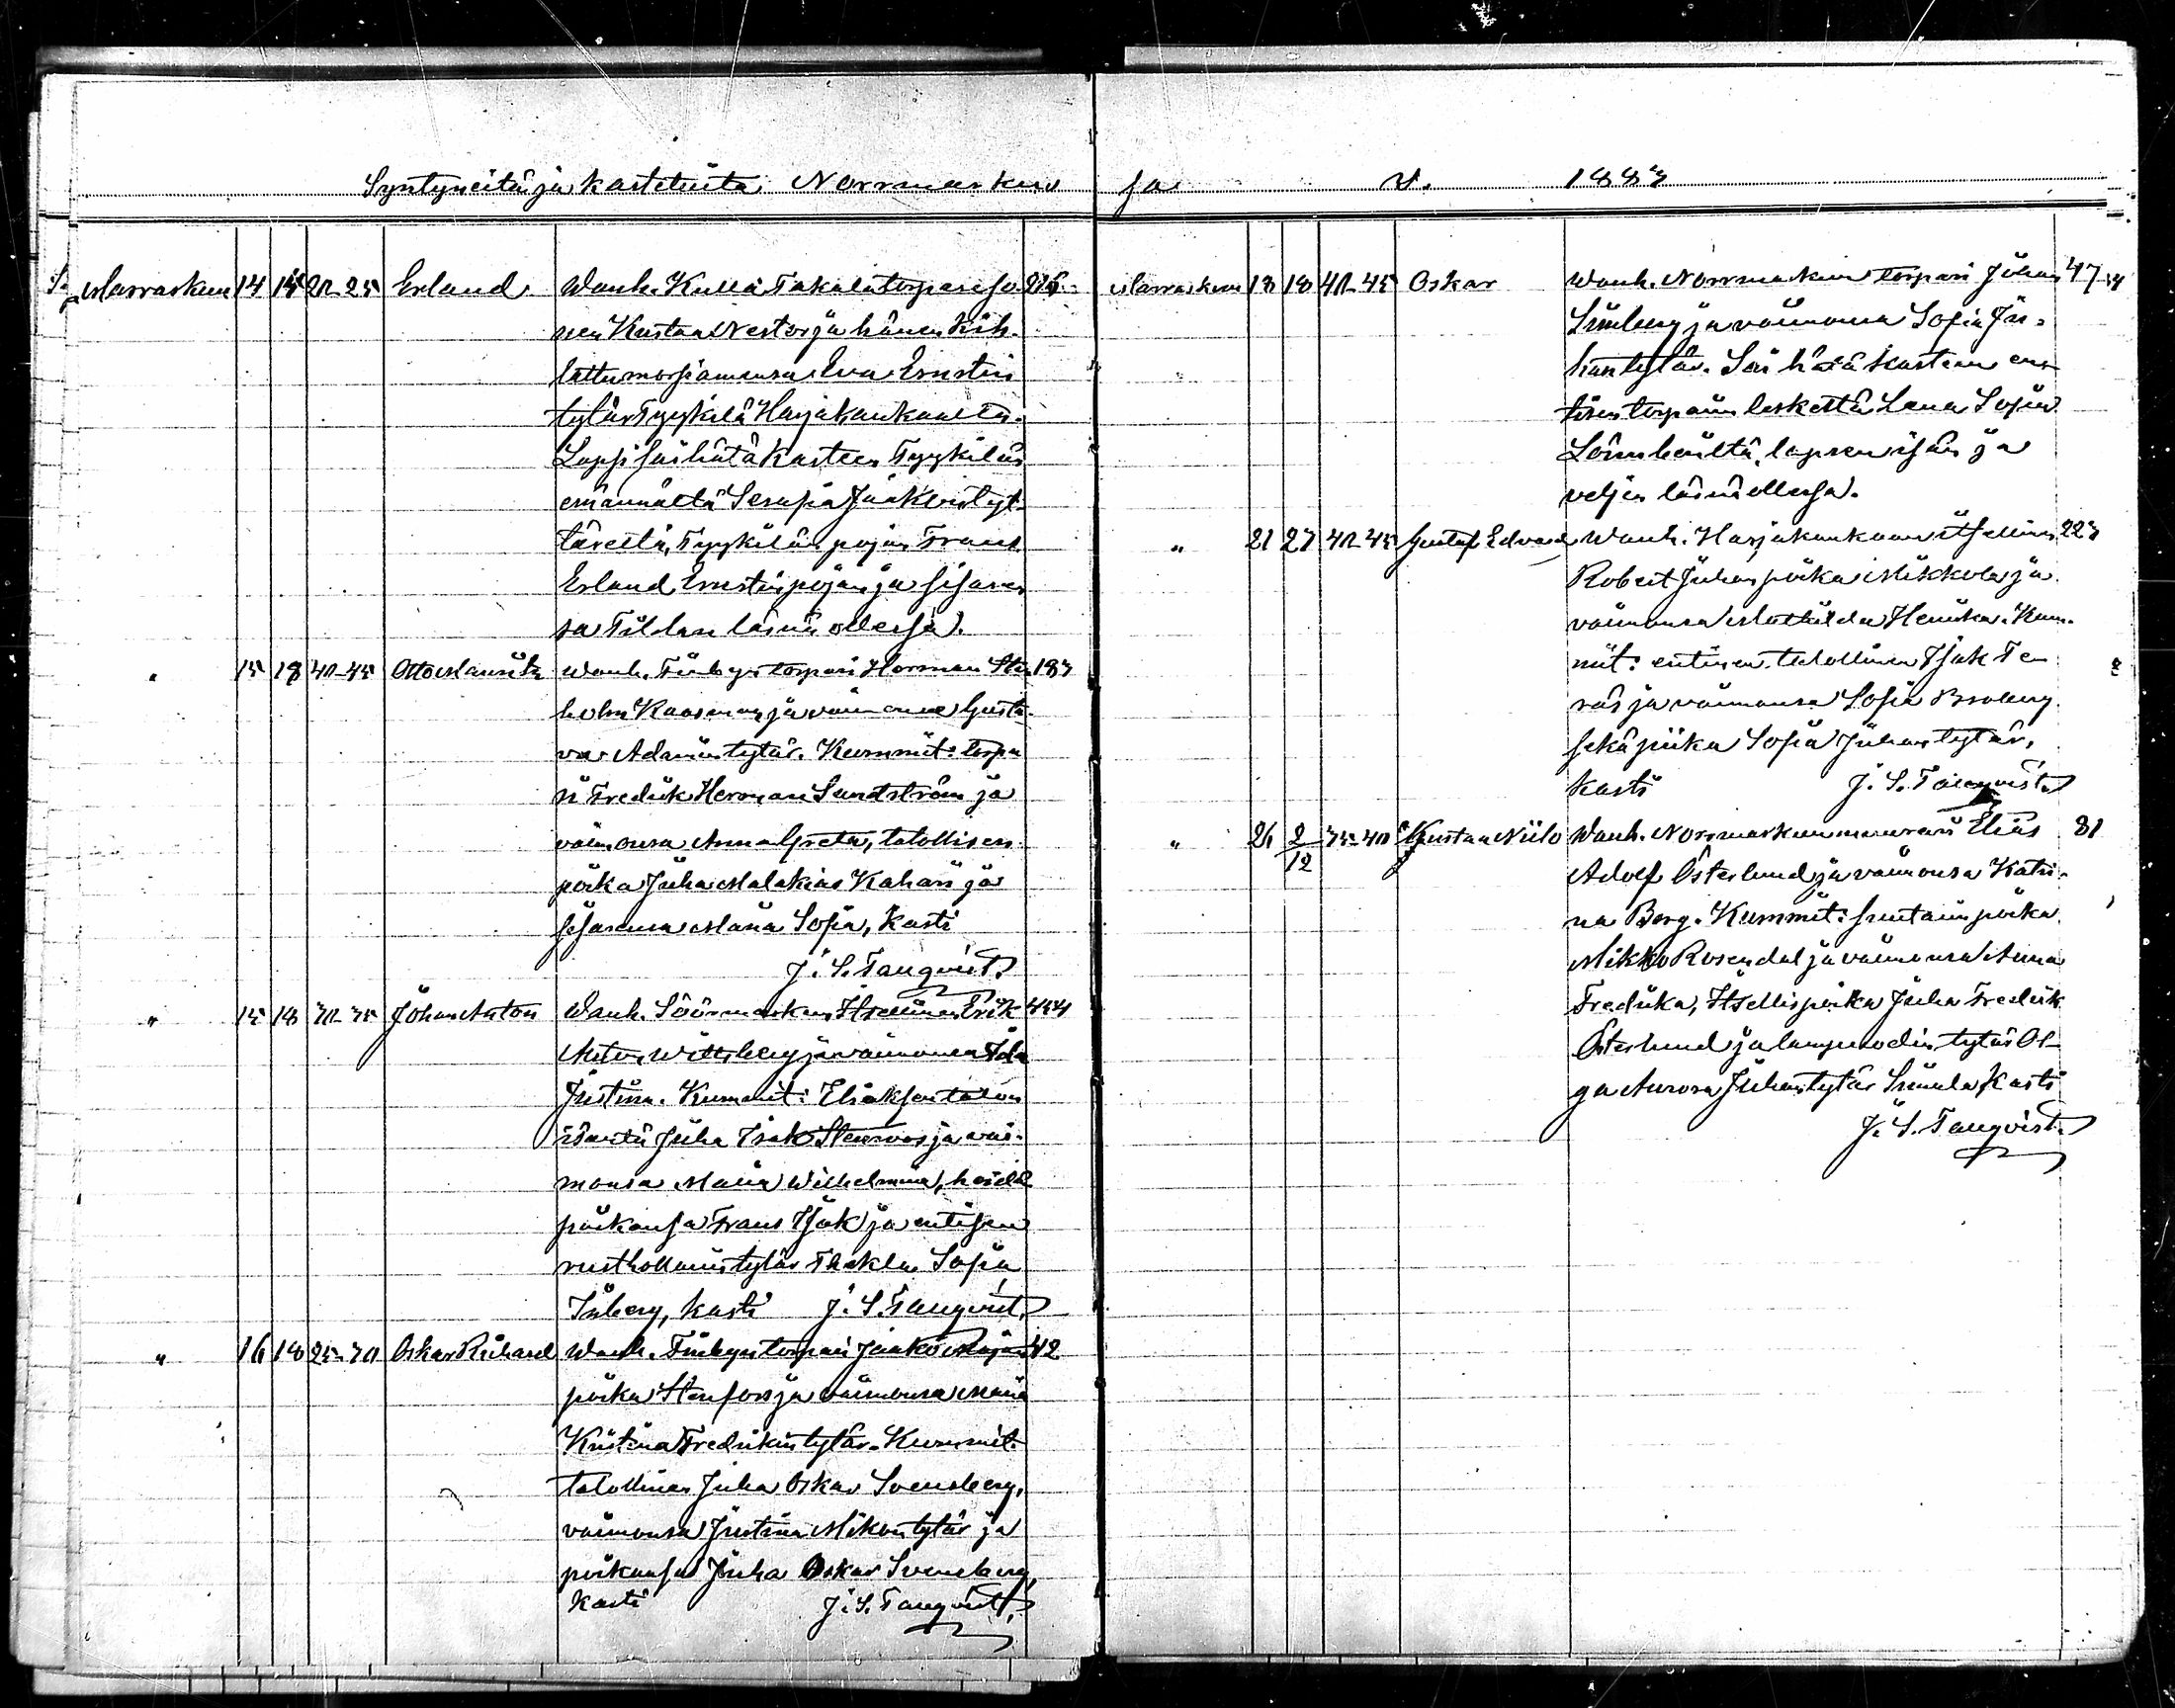 Syntyneitä ja kastetuita Norrmarkun
Marraskuu 14 14 20-25 Erland Wanh. Kullaa Takala torparissa 216
nen Kustaa Nestor ja hänen kih-
lattu morsiamensa Eva Ernstin
tytär Tyykilä Harjakankaalta.
Lapsi sai hätäkasteen Tyykilän
emännältä Serafia Jaakontyt-
täreltä, Tyykilän pojan Frans
Erland Ernstinpojan ja sisaren
sa Tildan läsnä ollessa.
" 15 18 40-45 Otto Mauritz Wanh. Finbyn torpari Herman Sten 183
holm Kaasmarkku ja vaimonsa Gusta-
va Adamintytär. Kummit: torpa
ri Fredrik Herman Sundström ja
vaimonsa Anna Greta, talollisen
poika Juha Malakias Kahari ja
sisarensa Maria Sofia, kasti
J. S. Tanqvist.
" 15 18 70-75 Johan Anton Wanh. Söörmarkun Itsellinen Erik 454
Anton Wittsberg ja vaimonsa Ida
Justina. Kummit: Eliaksen talon
isäntä Juha Isak Stenroos ja vai-
monsa Maria Wilhelmina, heidän
poikansa Frans Isak ja entisen
rusthollarin tytär Thekla Sofia
Isberg, kasti J. S. Tanqvist.
" 16 18 25-30 Oskar Richard Wanh. Finbyn torpari Jaakko 42
poika Stenfors ja vaimonsa Maria
Kristina Fredrikintytär. Kummit:
talollinen Juha Oskar Svensberg,
vaimonsa Justina Mikontytär ja
poikansa Juha Oskar Svensberg,
kasti J. S. Tanqvist.
sa v. 1883
Marraskuu 18 18 40-45 Oskar Wanh. Norrmarkun torpari Johan 47
Limberg ja vaimonsa Sofia Ju-
hantytär. Sai hätäkasteen en-
tisen torparin leskeltä Lena Sofia
lapsen isän ja
veljen läsnä ollessa.
" 21 27 40-45 Gustaf Edvard Wanh. Harjakankaan itsellinen 223
Robert Juhanpoika Mikkola ja
vaimonsa Mathilda Henrika. Kum-
mit: entinen talollinen Isak Te
räs ja vaimonsa Sofia Broberg
sekä piika Sofia Juhantytär,
kasti J. S. Tanqvist.
" 26 2/12 35-40 Kustaa Niilo Wanh. Norrmarkun muurari Elias 81
Adolf Österlund ja vaimonsa Katri-
na Berg. Kummit: suntion poika
Mikko Rosendal ja vaimonsa Anna
Fredrika, Itsellispoika Juha Fredrik
Österlund ja lampuodin tytär Ol-
ga Aurora Juhantytär Simula kasti
J. S. Tanqvist.